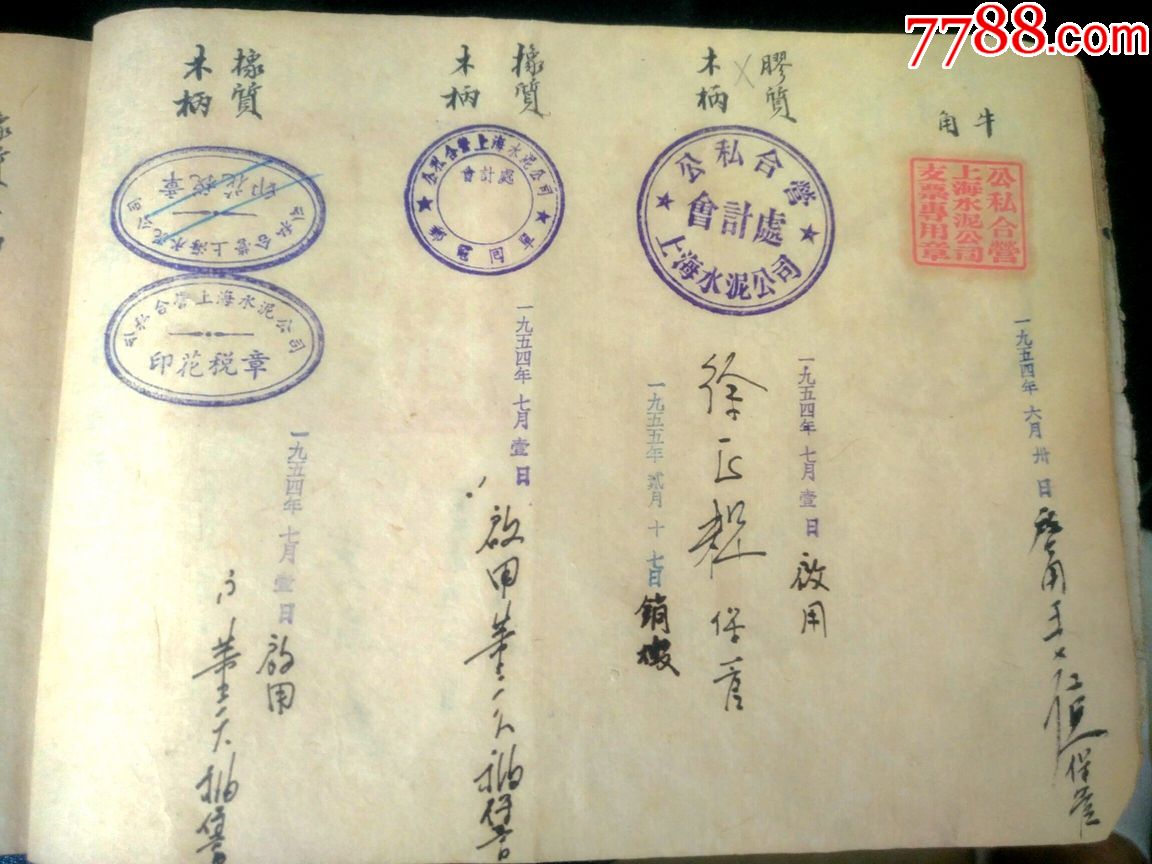 7788.com
牛角
公私合營
上海水泥公司
支票專用章
一九五四年 六月 卅 日 啟用
保管
膠質
木柄
公私合營
會計處
上海水泥公司
一九五四年 七月 壹 日 啟用
徐
保管
一九五五年 貳月 十 七日 銷燬
橡質
木柄
公私合營上海水泥公司
會計處
一九五四年 七月 壹 日
啟用
保管
橡質
木柄
公私合营上海水泥公司
印花税章
公私合营上海水泥公司
印花税章
一九五四年 七月 壹 日 啟用